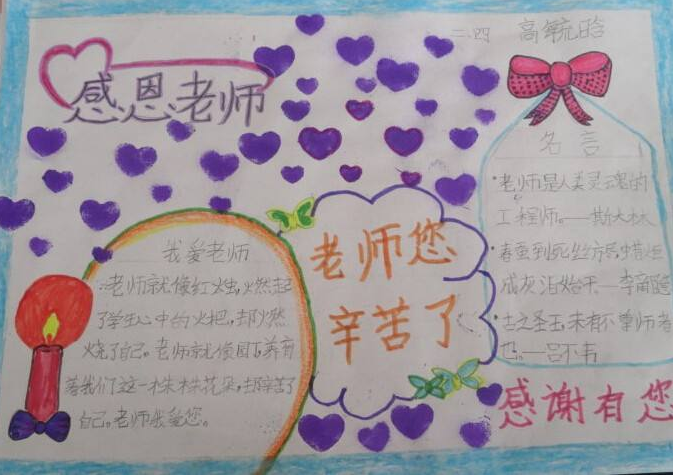 二.四 高毓晗
感恩老师
名言
·老师是人类灵魂的
工程师。——斯大林
·春蚕到死丝方尽，蜡炬
成灰泪始干——李商隐
·古之圣王，未有不尊师者
也。——吕不韦
我爱老师
老师就像红烛，燃起
了学生心中的火把，却燃
烧了自己。老师就像园丁，养育
着我们这一株株花朵，却辛苦了
自己。老师我爱您。
老师您
辛苦了
感谢有您